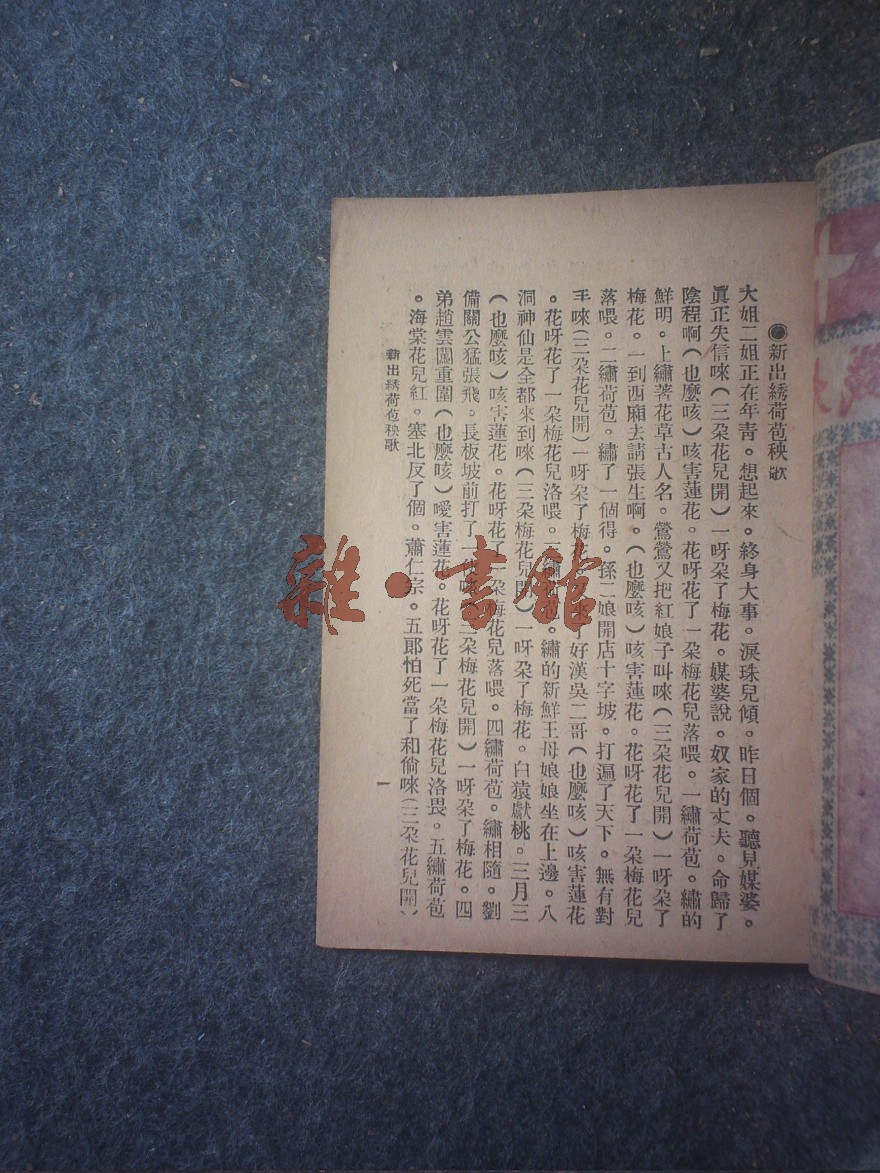 ●新出綉荷苞秧歌
大姐二姐正在年靑。想起來。終身大事。淚珠兒傾。昨日個。聽見媒婆。
眞正失信唻(三朶花兒開)一呀朶了梅花。媒婆說。奴家的丈夫。命歸了
陰程啊(也麼咳)咳害蓮花。花呀花了一朶梅花兒落喂。一繡荷苞。繡的
鮮明。上繡著花草古人名。鶯鶯又把紅娘子叫唻(三朶花兒開)一呀朶了
梅花。一到西廂去請張生啊。(也麼咳)咳害蓮花。花呀花了一朶梅花兒
落喂。二繡荷苞。繡了一個得。孫二娘開店十字坡。打遍了天下。無有對
手唻(三朶花兒開)一呀朶了梅花。來了好漢吳二哥(也麼咳)咳害蓮花
。花呀花了一朶梅花兒洛喂。三繡荷苞。繡的新鮮王母娘娘坐在上邊。八
洞神仙是全都來到唻(三朶梅花兒開)一呀朶了梅花。白猿獻桃。三月三
(也麼咳)咳害蓮花。花呀花了一朶梅花兒落喂。四繡荷苞。繡相隨。劉
備關公猛張飛。長板坡前打了一仗唻(三朶梅花兒開)一呀朶了梅花。四
弟趙雲闖重圍(也麼咳)噯害蓮花。花呀花了一朶梅花兒洛畏。五繡荷苞
。海棠花兒紅。塞北反了個。蕭仁宗。五郞怕死當了和倘唻(三朶花兒開)
新出綉荷苞秧歌
一
雜·書館